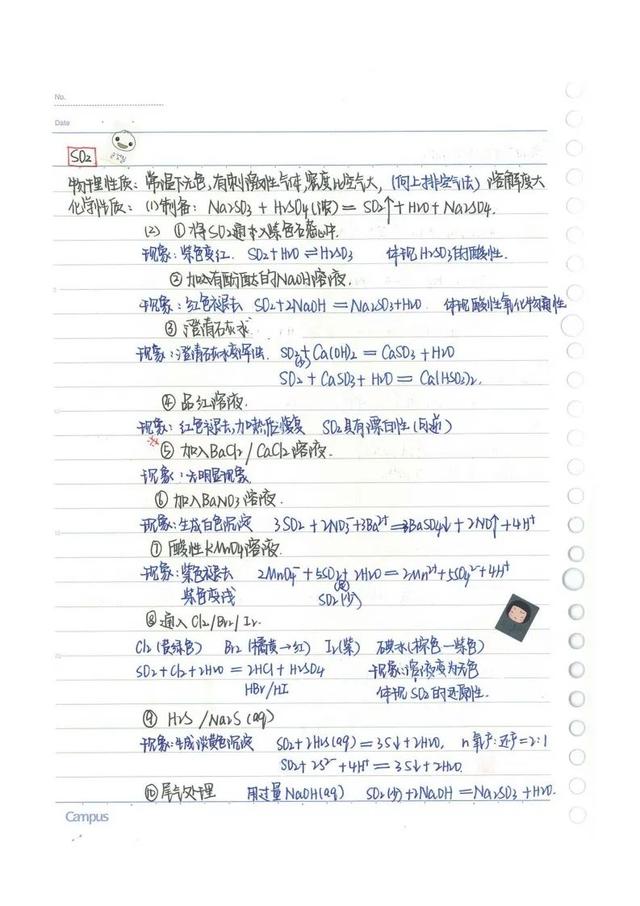 No.
Date
SO₂
物理性质：常温下无色，有刺激性气体，密度比空气大，(向上排空气法) 溶解度大
化学性质：(1)制备：Na₂SO₃ + H₂SO₄(浓) = SO₂↑ + H₂O + Na₂SO₄.
(2) ①将SO₂通入紫色石蕊中.
现象：紫色变红. SO₂ + H₂O ⇌ H₂SO₃ 体现H₂SO₃的酸性.
②加入有酚酞的NaOH溶液.
现象：红色褪去 SO₂+2NaOH = Na₂SO₃+H₂O. 体现酸性氧化物通性
③ 澄清石灰水
现象：澄清石灰水变浑浊. SO₂+Ca(OH)₂ = CaSO₃ + H₂O
(少)
SO₂ + CaSO₃ + H₂O = Ca(HSO₃)₂.
④ 品红溶液.
现象：红色褪去,加热后恢复 SO₂具有漂白性(可逆)
⑤ 加入BaCl₂ / CaCl₂溶液.
现象：无明显现象.
⑥ 加入BaNO₃溶液.
现象：生成白色沉淀 3SO₂ + 2NO₃⁻+3Ba²⁺=3BaSO₄↓ + 2NO↑ + 4H⁺
⑦ 酸性KMnO₄溶液.
现象：紫色褪去 2MnO₄⁻+5SO₂+2H₂O = 2Mn²⁺+5SO₄²⁻+4H⁺
紫色变浅 SO₂(少)
⑧ 通入Cl₂/Br₂/I₂.
Cl₂(黄绿色) Br₂(橘黄→红) I₂(紫) 碘水(棕色—紫色)
SO₂+Cl₂+2H₂O = 2HCl + H₂SO₄ 现象：溶液变为无色
HBr/HI 体现SO₂的还原性.
⑨ H₂S /Na₂S (aq)
现象：生成淡黄色沉淀 SO₂+2H₂S(aq) = 3S↓+2H₂O, n氧产:还产=2:1
SO₂ + 2S²⁻ +4H⁺ = 3S↓+2H₂O.
⑩ 尾气处理 用过量NaOH(aq) SO₂(少)+2NaOH = Na₂SO₃ + H₂O.
Campus